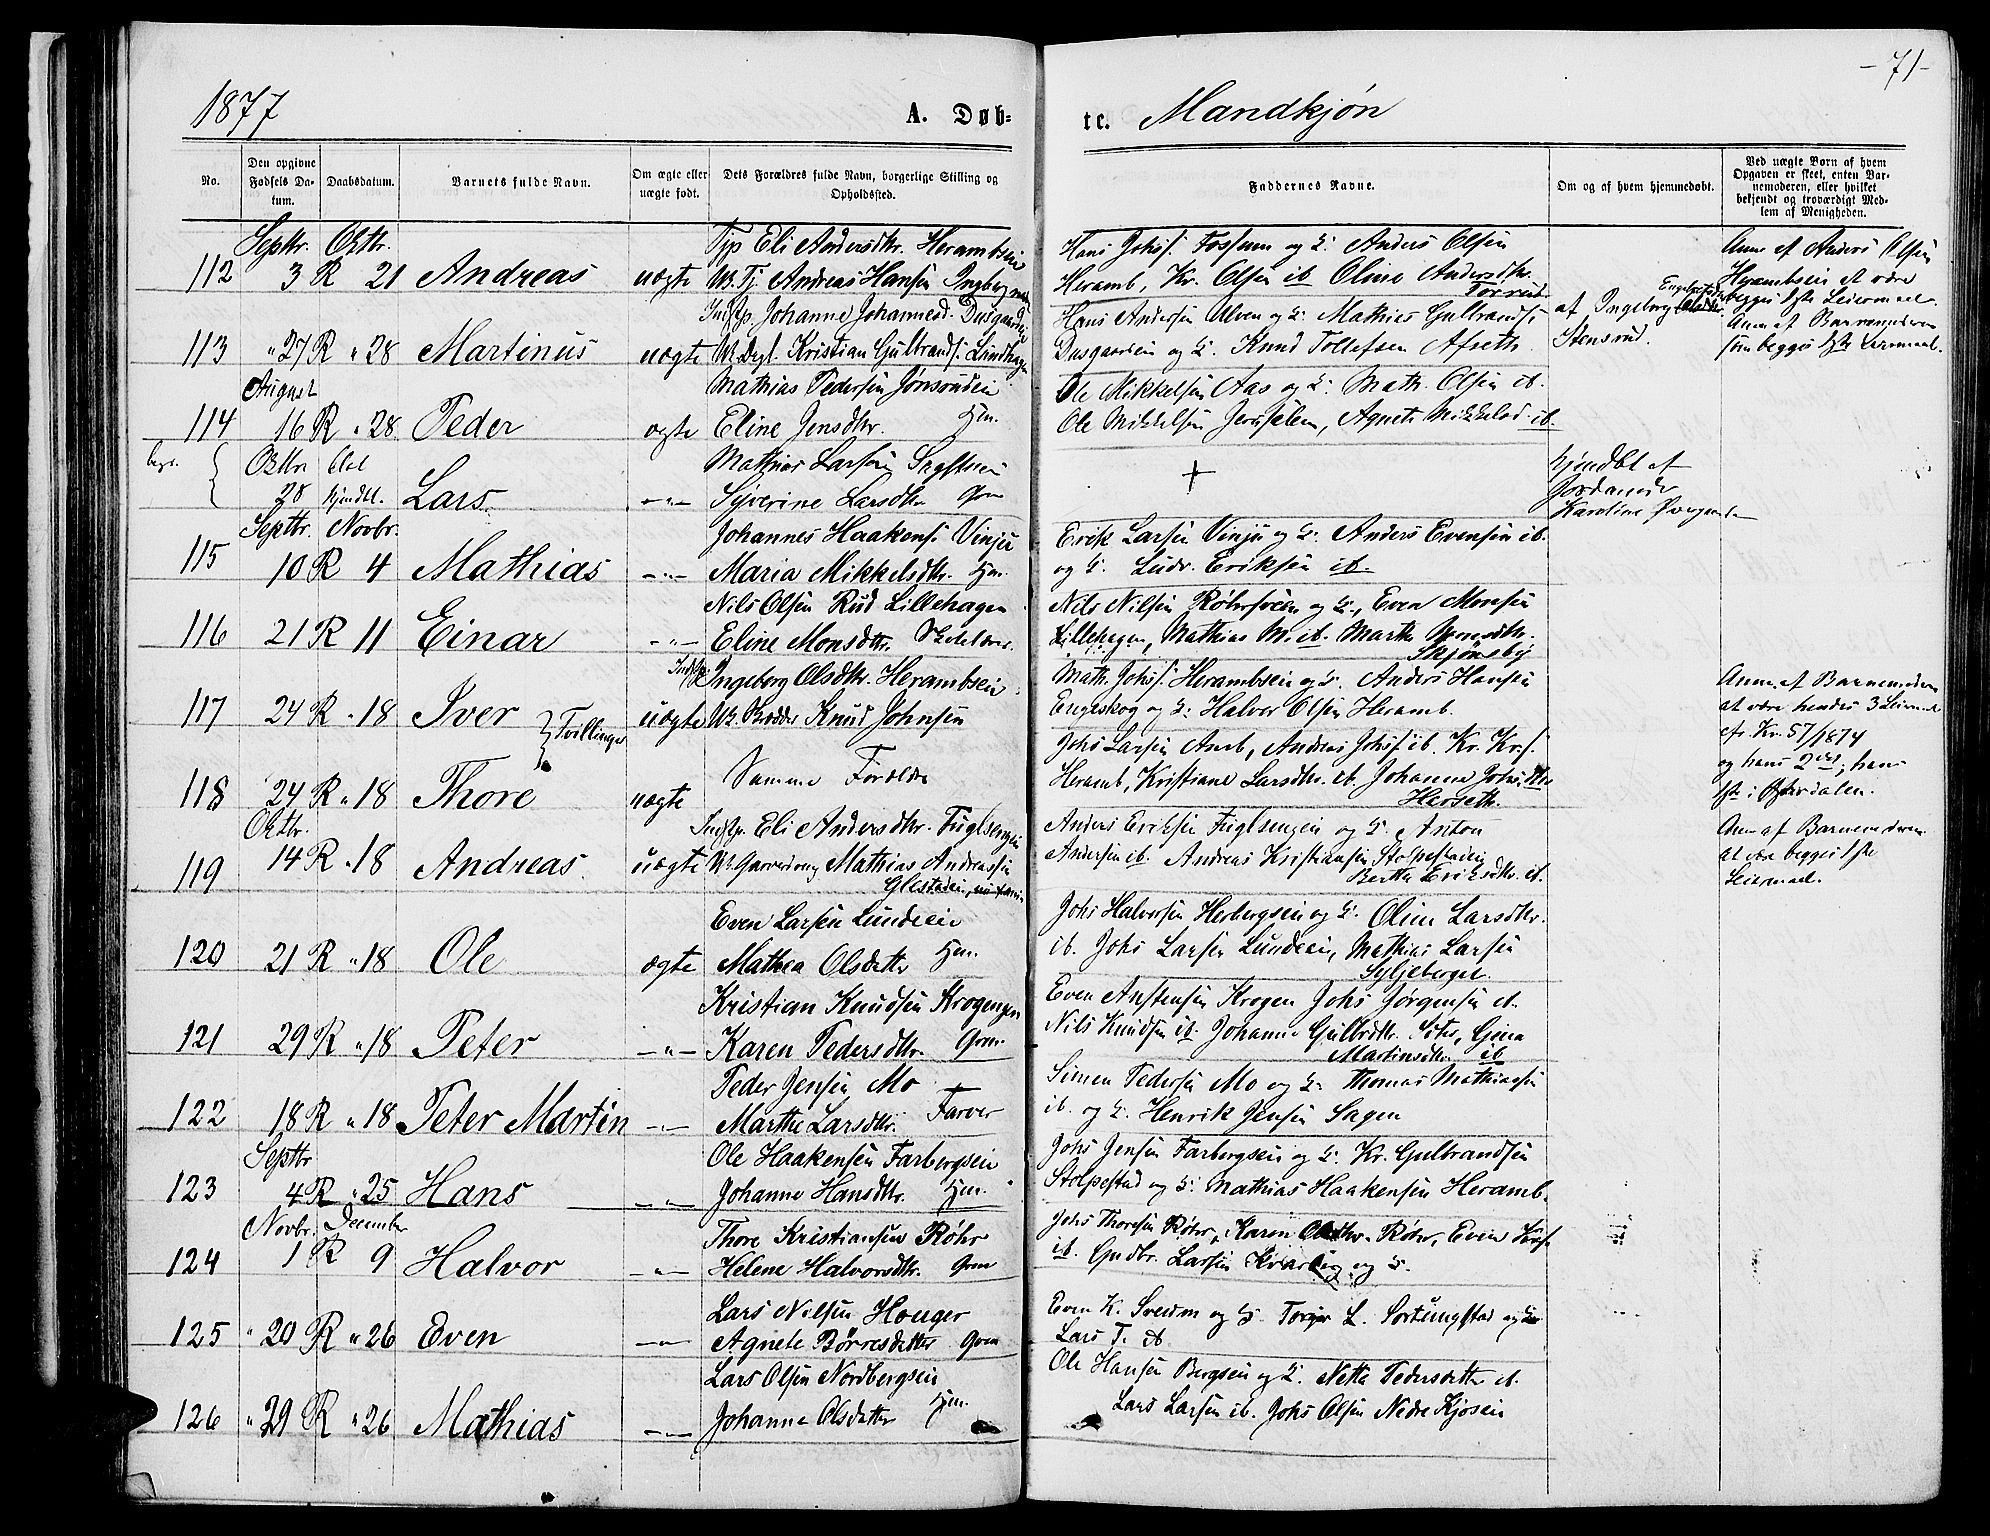 1877
A. Døb-
te. Mandkjøn
-71-
No.
Den opgivne Fødsels Datum.
Daabsdatum.
Barnets fulde Navn.
Om ægte eller uægte født.
Dets Forældres fulde Navn, borgerlige Stilling og Opholdssted.
Faddernes Navne.
Om og af hvem hjemmedøbt.
Ved uægte Børn af hvem Opgaven er skeet, enten Barnemoderen, eller hvilket bekjendt og troværdigt Medlem af Menigheden.
Septbr. Oktbr. Eli Andersdtr. Herambseie
112 3 R 21 Andreas uægte Andreas Hansen
Hans Johs. Fossum og Anders Olsen
Heramb, Kr. Olsen ib Oline Andersdtr.
Anm. af Anders Olsen
Herambseie at være
begges 1ste Leiermaal.
Johanne Johannesd.
113 " 27 R " 28 Martinus uægte Kristian Gulbrands. Lundhagen
Hans Andersen Ulven og Mathias Gulbrands.
og Knud Tollefsen Afseth
af Ingeborg
Stensrud.
Anm. af Barnemoderen
som begges 1ste Leiermaal.
August Mathias Pedersen
114 16 R " 28 Peder ægte Eline Jensdtr. Hjm.
Ole Mikkelsen Aas og Math. Olsen ib.
Ole Mikkelsen Jerusalem, Agnete Mikkelsd. ib.
Oktbr Mathias Larsen
28 hjemdbt. Lars -"- Syverine Larsdtr. Grm
+
hjemdbt af
Jordemoder
Karoline
Septbr. Novbr. Johannes Haakens. Vinju
115 10 R 4 Mathias -"- Maria Mikkelsdtr. Hjm.
Erik Larsen Vinju og Anders Evensen ib.
og Ludv. Eriksen ib.
Nils Olsen Rud Lillehagen
116 21 R 11 Einar -"- Eline Monsdtr.
Nils Nilsen og Even Monsen
Lillehagen, Mathias M. ib. Marthe
Skjønsby
Ingeborg Olsdtr. Herambseie
117 24 R " 18 Iver uægte Knud Johnsen
Tvillinger
Math. Johs. Herambseie og Anders Hansen
Engeskog og Halvor Olsen Heramb.
Anm. af Barnemoderen
at være hendes 3 Leiermaal
cfr. Nr. 57/1874
og hans 2det; hans
1ste i Østerdalen.
Samme Forældre
118 24 R " 18 Thore uægte
Johs Larsen Amb, Andreas Johs. ib. Kr. Kr.s.
Heramb, Kristiane Larsdtr. ib. Johanne Johs.dtr.
Harseth.
Oktbr. Eli Andersdtr. Fuglsengen
119 14 R " 18 Andreas uægte Mathias Andreassen
Anders Eriksen Fuglsengen og Anton
Andersen ib. Andreas Kristiansen Stolpestadeie
Berthe Eriksdtr. ib.
Anm. af Barnemoderen
at være begges 1ste
Leiermaal.
Even Larsen Lundeeie
120 21 R " 18 Ole ægte Mathea Olsdatter Hjm.
Johs Halvorsen Herbergseie og Oline Larsdtr.
ib. Johs Larsen Lundeeie, Mathias Larsen
Syljeberget.
Kristian Knudsen Krogengen
121 29 R " 18 Peter -"- Karen Pedersdtr. Grm.
Even Anstensen Krogen Johs Jørgensen ib.
Nils Knudsen ib. Johanne Gulbrdtr.
Martinsdtr. ib
Peder Jensen Mo
122 18 R " 18 Peter Martin -"- Marthe Larsdtr. Farver
Simen Pedersen Mo og Thomas Mathiasen
ib. og Henrik Jensen Sagen
Septbr Ole Haakensen Farbergseie
123 4 R " 25 Hans -"- Johanne Hansdtr. Hjm.
Johs Jensen Farbergseie og Kr. Gulbrandsen
Stolpestad og Mathias Haakensen Heramb.
Novbr. December Thore Kristiansen Røhr
124 1 R 9 Halvor -"- Helene Halvorsdtr. Grm
Johs Thoresen Røhr, Karen Olsdtr. Røhr, Even
ib. Gudbr. Larsen Kvarberg og
Lars Nilsen Houger
125 " 20 R " 26 Even -"- Agnete Børresdatter Grm
Even K. Sveum og Torger L. og
Lars T. ib
Lars Olsen Nordbergseie
126 " 29 R " 26 Mathias -"- Johanne Olsdatter Hjm.
Ole Hansen Bergseie og Netta Pedersdatter ib.
Lars Larsen ib. Johs Olsen Nedre Kjoseie